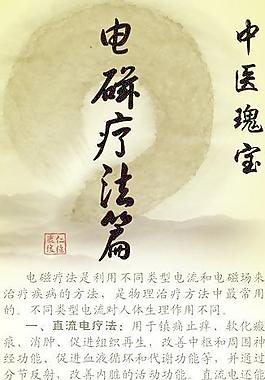 中医瑰宝
电磁疗法篇
电磁疗法是利用不同类型电流和电磁场来
治疗疾病的方法，是物理治疗方法中最常用
的。不同类型电流对人体生理作用不同。
一、直流电疗法：用于镇痛止痒、软化瘢
痕、消肿、促进组织再生、改善中枢和周围神
经功能、促进血液循环和代谢功能等，并通过
分节反射，改善内脏的活动功能。直流电还能